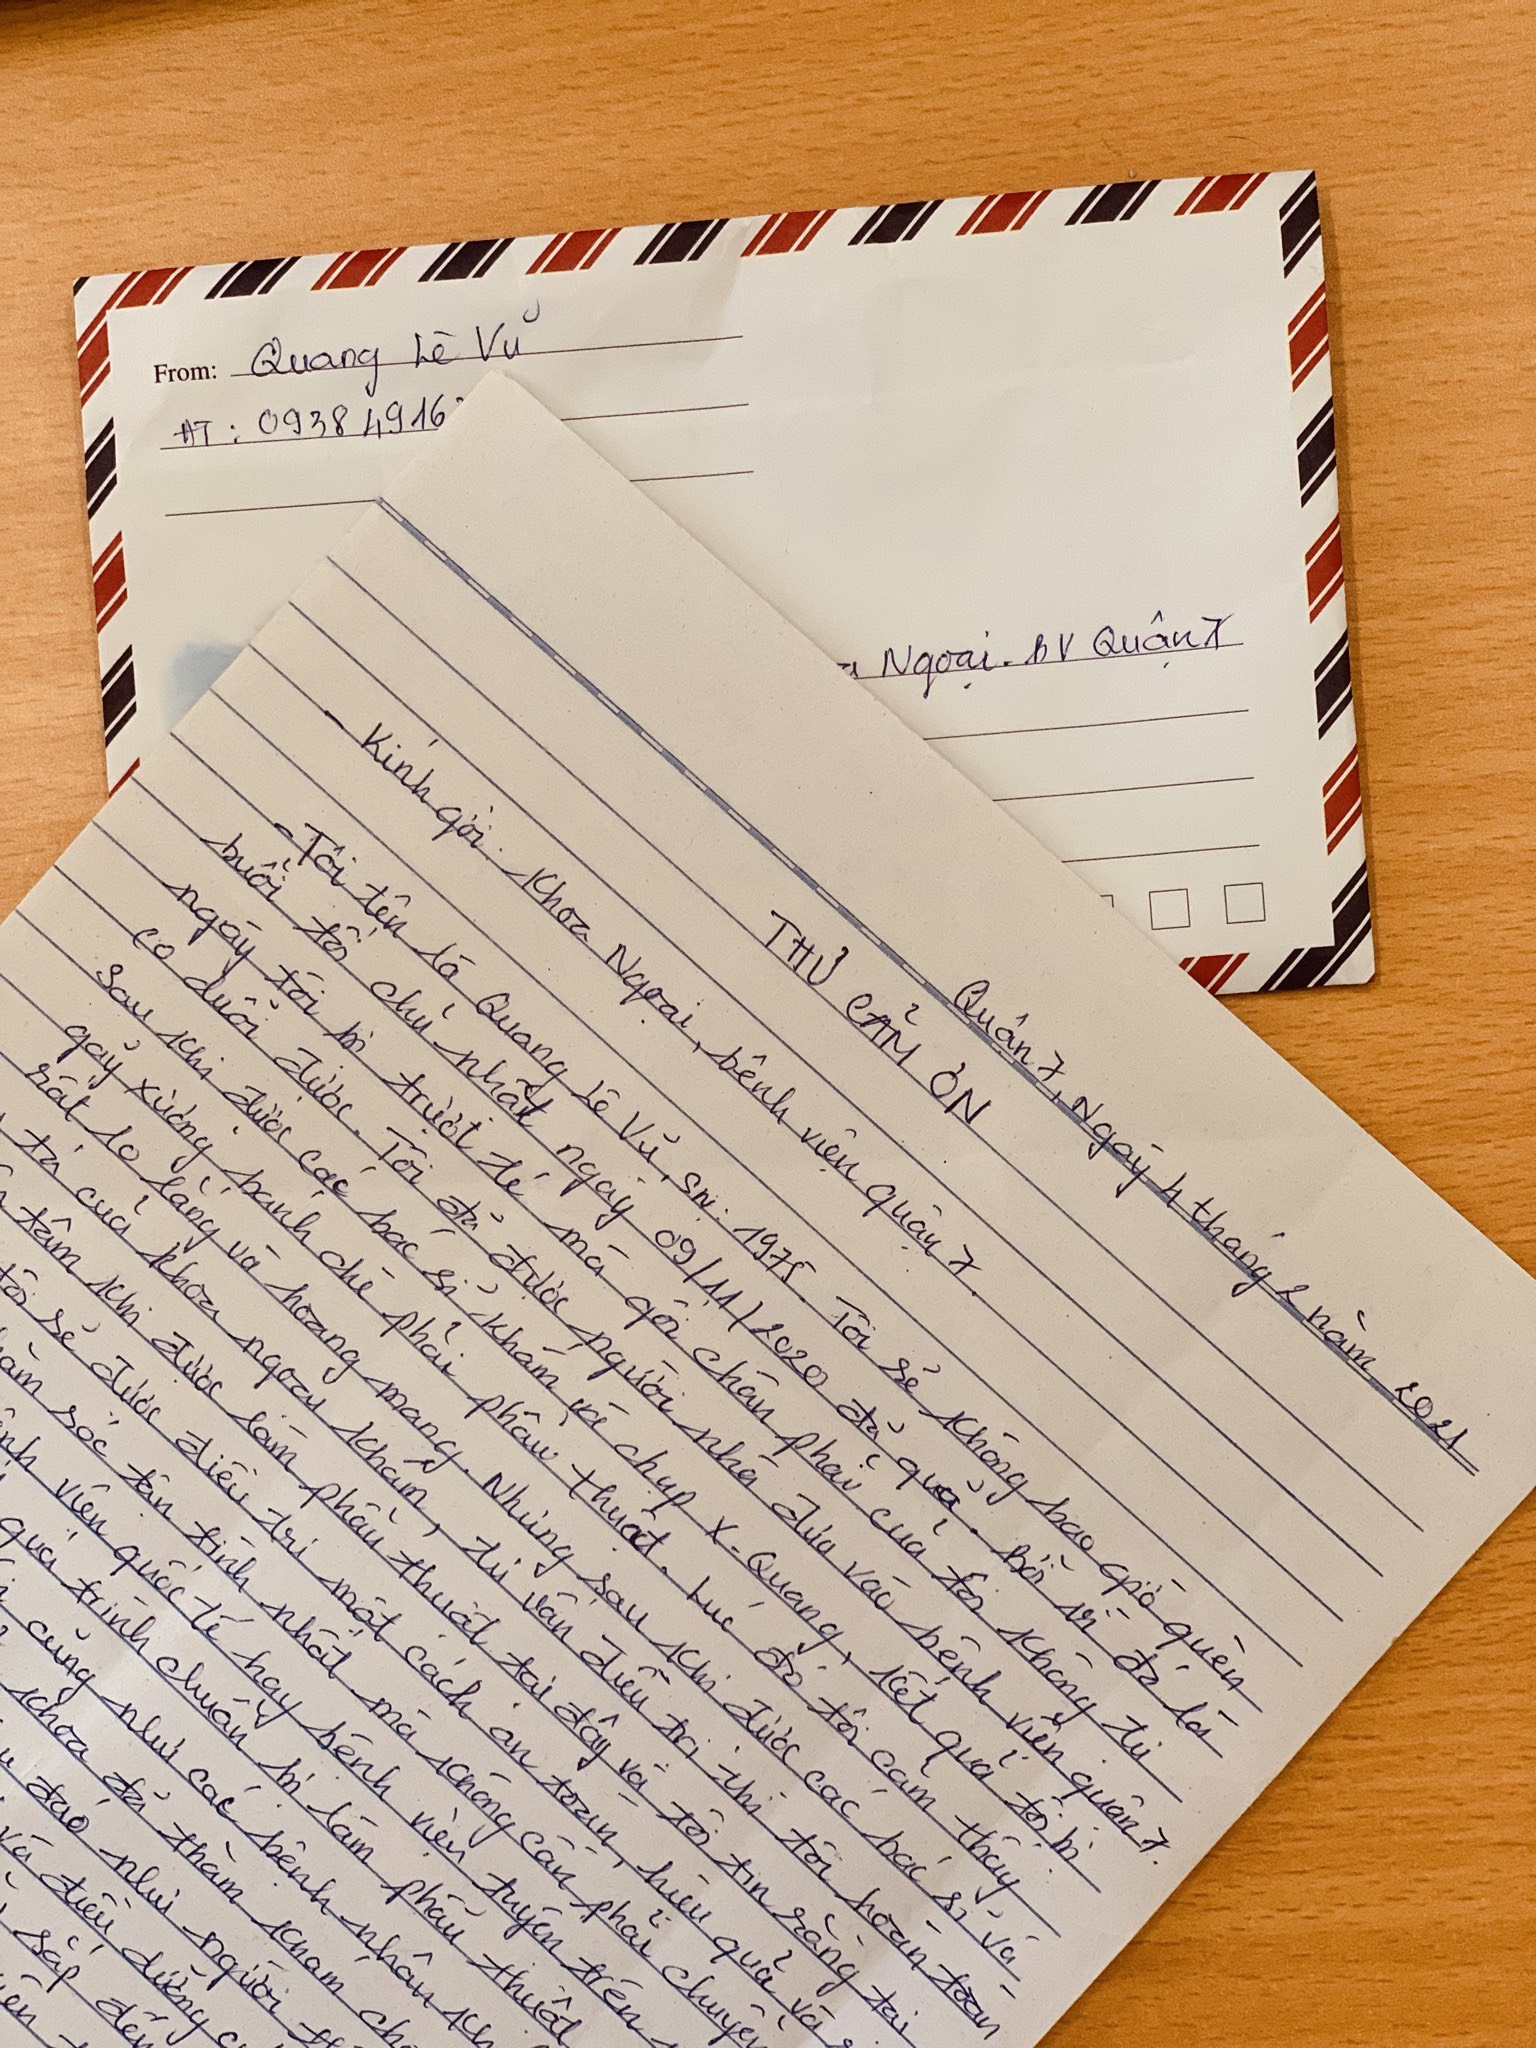 From: Quang Lê Vũ
ĐT: 09384916
Ngoại. BV Quận 7
Quận 7, Ngày 4 tháng 2 năm 2021
THƯ CẢM ƠN
- Kính gởi: Khoa Ngoại, bệnh viện quận 7.
- Tôi tên là Quang Lê Vũ, SN: 1975. Tôi sẽ không bao giờ quên
buổi tối chủ nhật ngày 09/11/2020 đã qua. Bởi vì đó là
ngày tôi bị trượt té mà gối chân phải của tôi không tự
co duỗi được. Tôi đã được người nhà đưa vào bệnh viện quận 7.
Sau khi được các bác sĩ khám và chụp X-Quang, kết quả tôi bị
gãy xương bánh chè phải phẩu thuật. Lúc đó tôi cảm thấy
rất lo lắng và hoang mang. Nhưng sau khi được các bác sĩ và
tá của khoa ngoại khám, tư vấn điều trị thì tôi hoàn toàn
tâm khi được làm phẩu thuật tại đây và tôi tin rằng tại
tôi sẽ được điều trị một cách an toàn, hiệu quả và
sóc tận tình nhất mà không cần phải chuyển
viện quốc tế hay bệnh viện tuyến trên
quá trình chuẩn bị làm phẩu thuật
cũng như các bệnh nhân
khoa đã thăm khám
đáo như người
và điều dưỡng
sắp đến